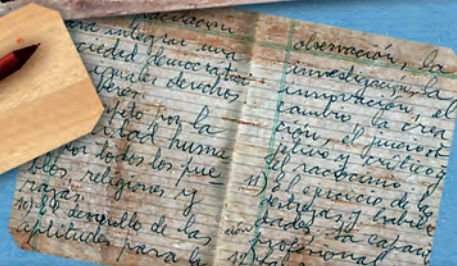 para integrar una
sociedad democrati
iguales derechos
beres.
peto por la
dignidad huma
por todos los pue
blos, religiones y
razas.
10) el desarrollo de las
aptitudes para la
observación, la
investigación, la
innovación, el
cambio, la crea
ción, el juicio o
jetivo y crítico y
el raciocinio.
11) El ejercicio de
destrezas, y habili
dades, la capaci
ción profesional
12)